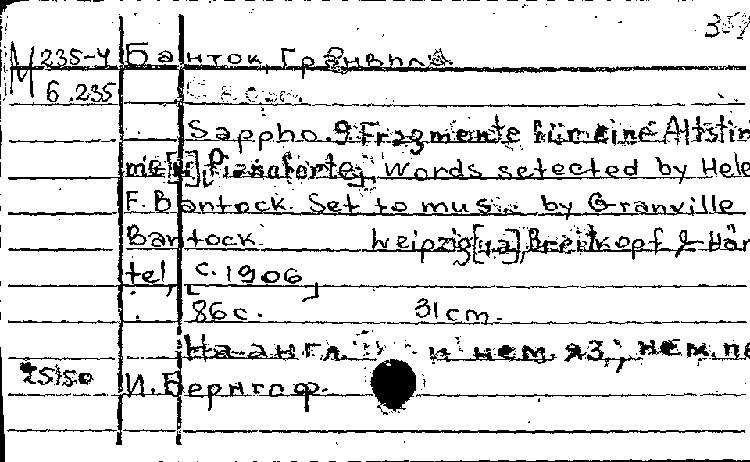 359
М 235-4 Банток, Грэнвилл
6.235
Sappho. 9 Fragmente für eine Altstim
me [u] Pianoforte, Words selected by Hele
F. Bantock. Set to music by Granville
Bantock. Leipzig [u.a], Breitkopf & Här
tel, [c. 1906]
86 с. 31 cm.
На англ. и нем. яз.; нем. пе
25150 И. Бернгоф.